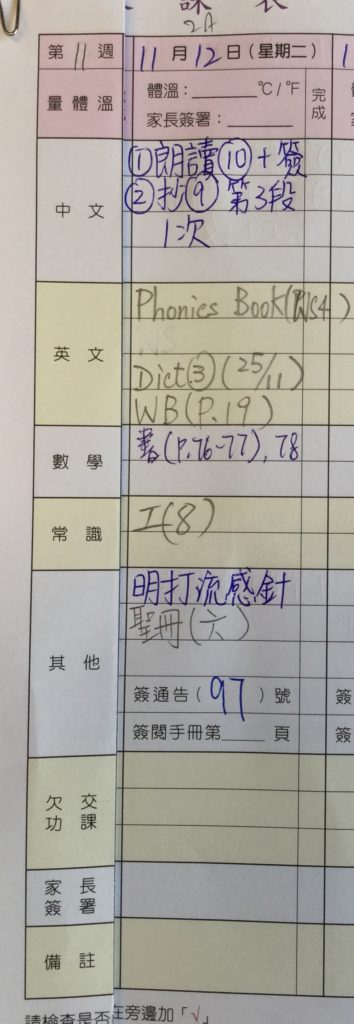 課表
2A
第 11 週 11 月 12 日 (星期二)
量體溫 體溫：______ °C / °F 完成
家長簽署：______
中文 ①朗讀⑩+簽
②抄⑨ 第3段
1次
英文 Phonics Book (WS4)
Dict③ (25/11)
WB (P.19)
數學 書(P.76-77), 78
常識 工(8)
其他 明打流感針
聖冊(六)
簽通告 ( 97 ) 號 簽
簽閱手冊第____頁 簽
欠交功課
家長簽署
備註
請檢查是否
在旁邊加「√」